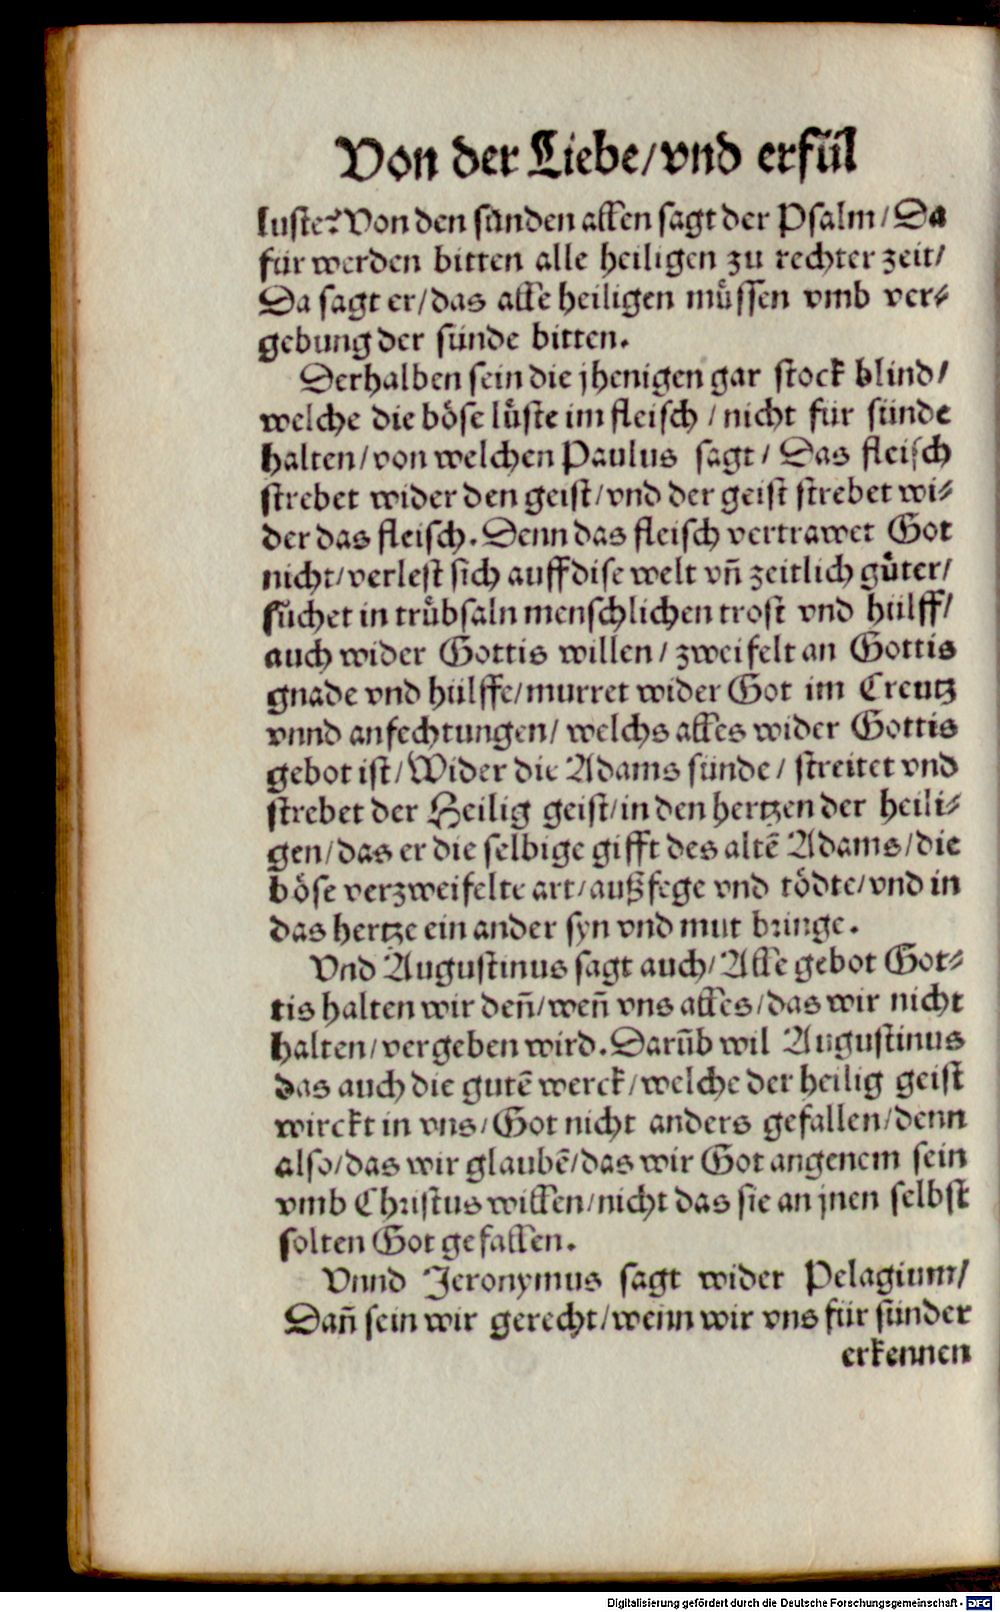 Von der Liebe/vnd erfül
luste? Von den sünden allen sagt der Psalm/Da
für werden bitten alle heiligen zu rechter zeit/
Da sagt er/das alle heiligen müssen vmb ver-
gebung der sünde bitten.
Derhalben sein die jhenigen gar stock blind/
welche die böse lüste im fleisch/nicht für sünde
halten/von welchen Paulus sagt/Das fleisch
strebet wider den geist/vnd der geist strebet wi-
der das fleisch. Denn das fleisch vertrawet Got
nicht/verlest sich auff dise welt vn̄ zeitlich güter/
suchet in trübsaln menschlichen trost vnd hülff/
auch wider Gottis willen/zweifelt an Gottis
gnade vnd hülffe/murret wider Got im Creutz
vnnd anfechtungen/welchs alles wider Gottis
gebot ist/Wider die Adams sünde/streitet vnd
strebet der Heilig geist/in den hertzen der heili-
gen/das er die selbige gifft des altē Adams/die
böse verzweifelte art/außfege vnd tödte/vnd in
das hertze ein ander syn vnd mut bringe.
Vnd Augustinus sagt auch/Alle gebot Got-
tis halten wir den̄/wen̄ vns alles/das wir nicht
halten/vergeben wird. Darūb wil Augustinus
das auch die gutē werck/welche der heilig geist
wirckt in vns/Got nicht anders gefallen/denn
also/das wir glaubē/das wir Got angenem sein
vmb Christus willen/nicht das sie an jnen selbst
solten Got gefallen.
Vnnd Jeronymus sagt wider Pelagium/
Dan̄ sein wir gerecht/wenn wir vns für sünder
erkennen
Digitalisierung gefördert durch die Deutsche Forschungsgemeinschaft - DFG